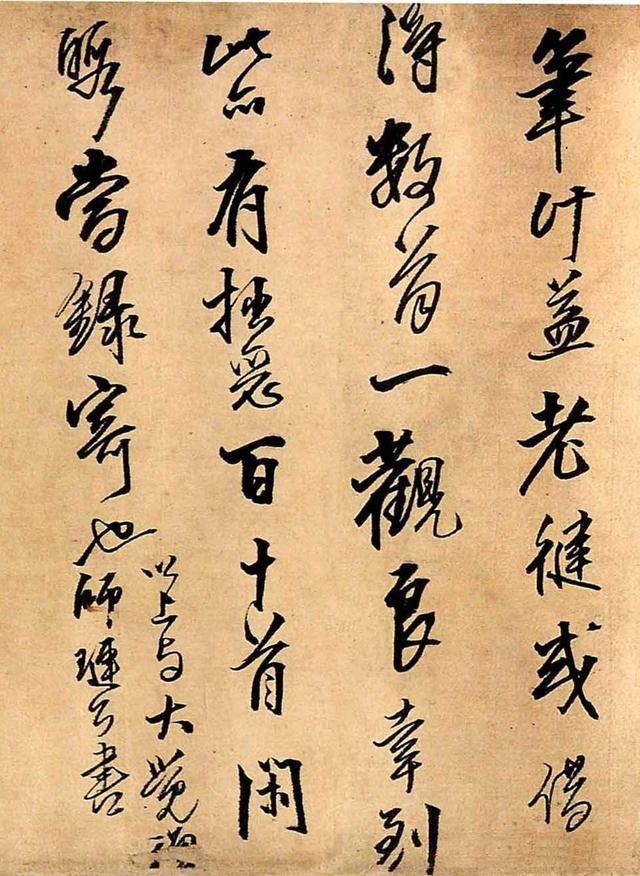 筆計益老健或借
得數首一觀良幸到
此亦有拙惡百十首閑
暇當錄寄也
以上与大覺禪
師璉公書